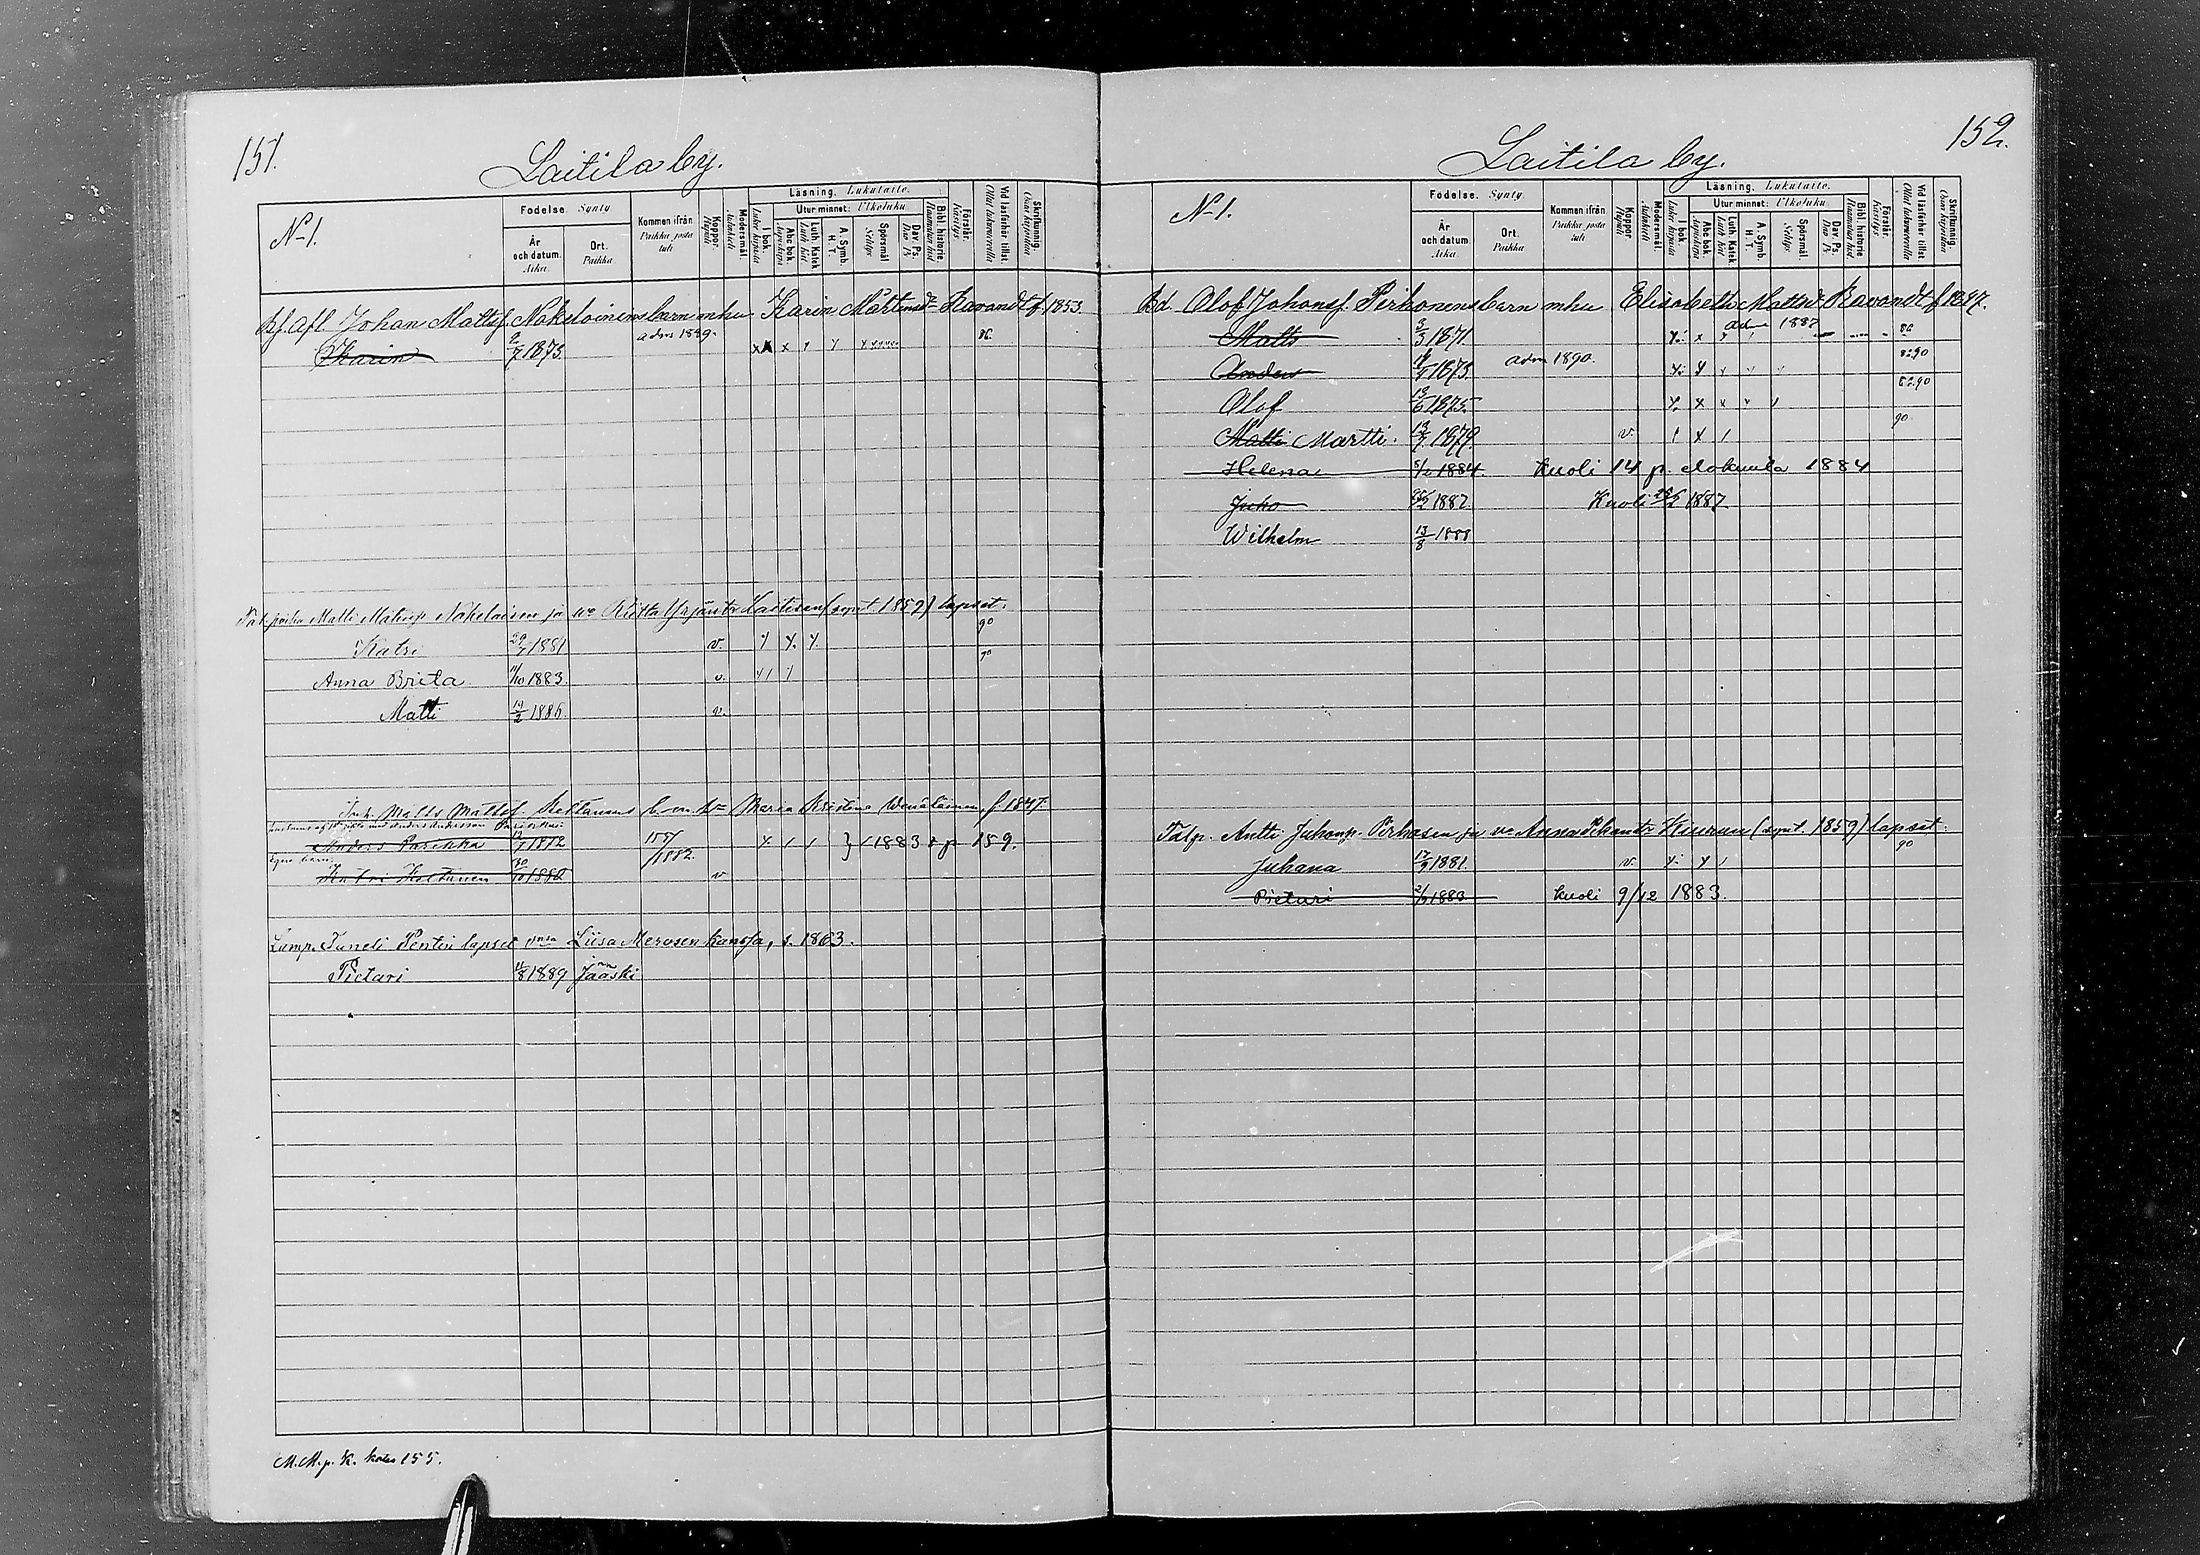 151.
Laitila by.
No 1.
Födelse. Synty
År och datum. Aika.
Ort. Paikka
Kommen ifrån Paikka josta tuli
Koppor Rupuli
Modersmål. Äidinkieli
Läsning. Lukutaito.
I bok. Luku kirjasta
Utur minnet: Ulkoluku
Abc bok. Aapiskirja
Luth. Katek. Luth. kat.
A. Symb. H. T.
Spörsmål Selitys
Dav. Ps. Dav. Ps.
Bibl. historie Raamatun hist.
Förstår. Käsitys
Vid läsförhör tillst. Ollut lukuvuorolla
Skrifkunnig. Osaa kirjoittaa
Johan Mattsf. Näkeläinens barn m hu Karin Mårtensdr Ravandtr f 1853.
Karin 2/7 1873. adm 1889. x x x 86
Matti Matinp. Näkeläisen ja vo Riitta Yrjäntr (synt 1852) lapset.
Katri 29/7 1881 v. 90
Anna Brita 11/10 1883. v. 90
Matti 19/2 1886. v.
Matts Mattsf Kettunens b m Maria Kristina Wenäläinen, f. 1847.
Anders Parikka 1872 157/1882. } 1883 s p 159.
Egna barn.
Katri Kettunen 30/10 1882 v
Lamp. Taneli Pentin lapset vmsa Liisa Merosen kanssa, s. 1863.
Pietari 11/8 1889 Jääski
M.M. p. k. katso 155.
152.
Laitila by.
No 1.
Födelse. Synty
År och datum. Aika.
Ort. Paikka
Kommen ifrån. Paikka josta tuli
Koppor Rupuli
Modersmål. Äidinkieli
Läsning. Lukutaito.
I bok. Luku kirjasta
Utur minnet: Ulkoluku
Abc bok. Aapiskirja
Luth. Katek. Luth. kat.
A. Symb. H. T.
Spörsmål. Selitys.
Dav. Ps. Dav. Ps.
Bibl. historie Raamatun hist.
Förstår. Käsitys
Vid läsförhör tillst. Ollut lukuvuorolla
Skrifkunnig. Osaa kirjoittaa
Bd. Olof Johansf. Pirhonens barn m hu Elisabeth Mattsdr Ravandtr f 1847.
Matts 3/3 1871. adm 1887 86
Anders 1873. adm 1890. 86 90
Olof 13/6 1875. 86.90
Matti Martti. 13/7 1879. v. 90
Helena 5/2 1884. Kuoli 14 p. elokuuta 1884
Juho 1887. Kuoli 1887
Wilhelm 13/8 1888
Talp. Antti Juhonp. Pirhosen ja vo Anna Pekantr Kinnunen (synt. 1859) lapset.
Juhana 17/9 1881. v. 90
Pietari 1883 kuoli 9/12 1883.